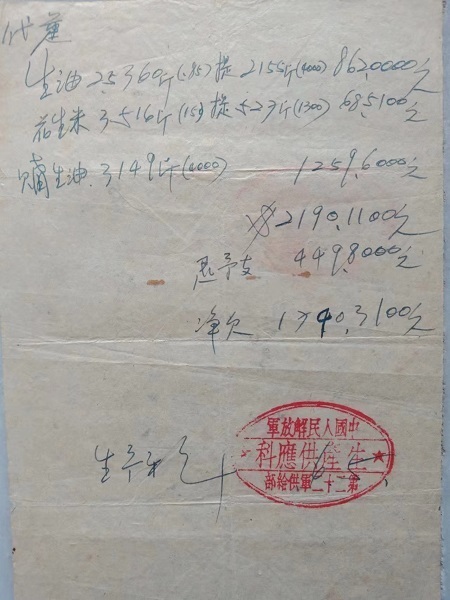 生油 25,360斤(.85) 提 2155斤(4000) 8620000元
花生米 3,516斤(15) 提 527斤(1300) 685,100元
購生油 3149斤(4000) 1259,6000元
2190,1100元
予支 449,8000元
净欠 1740,3100元
中國人民解放軍
生產供應科
第二十二軍供給部